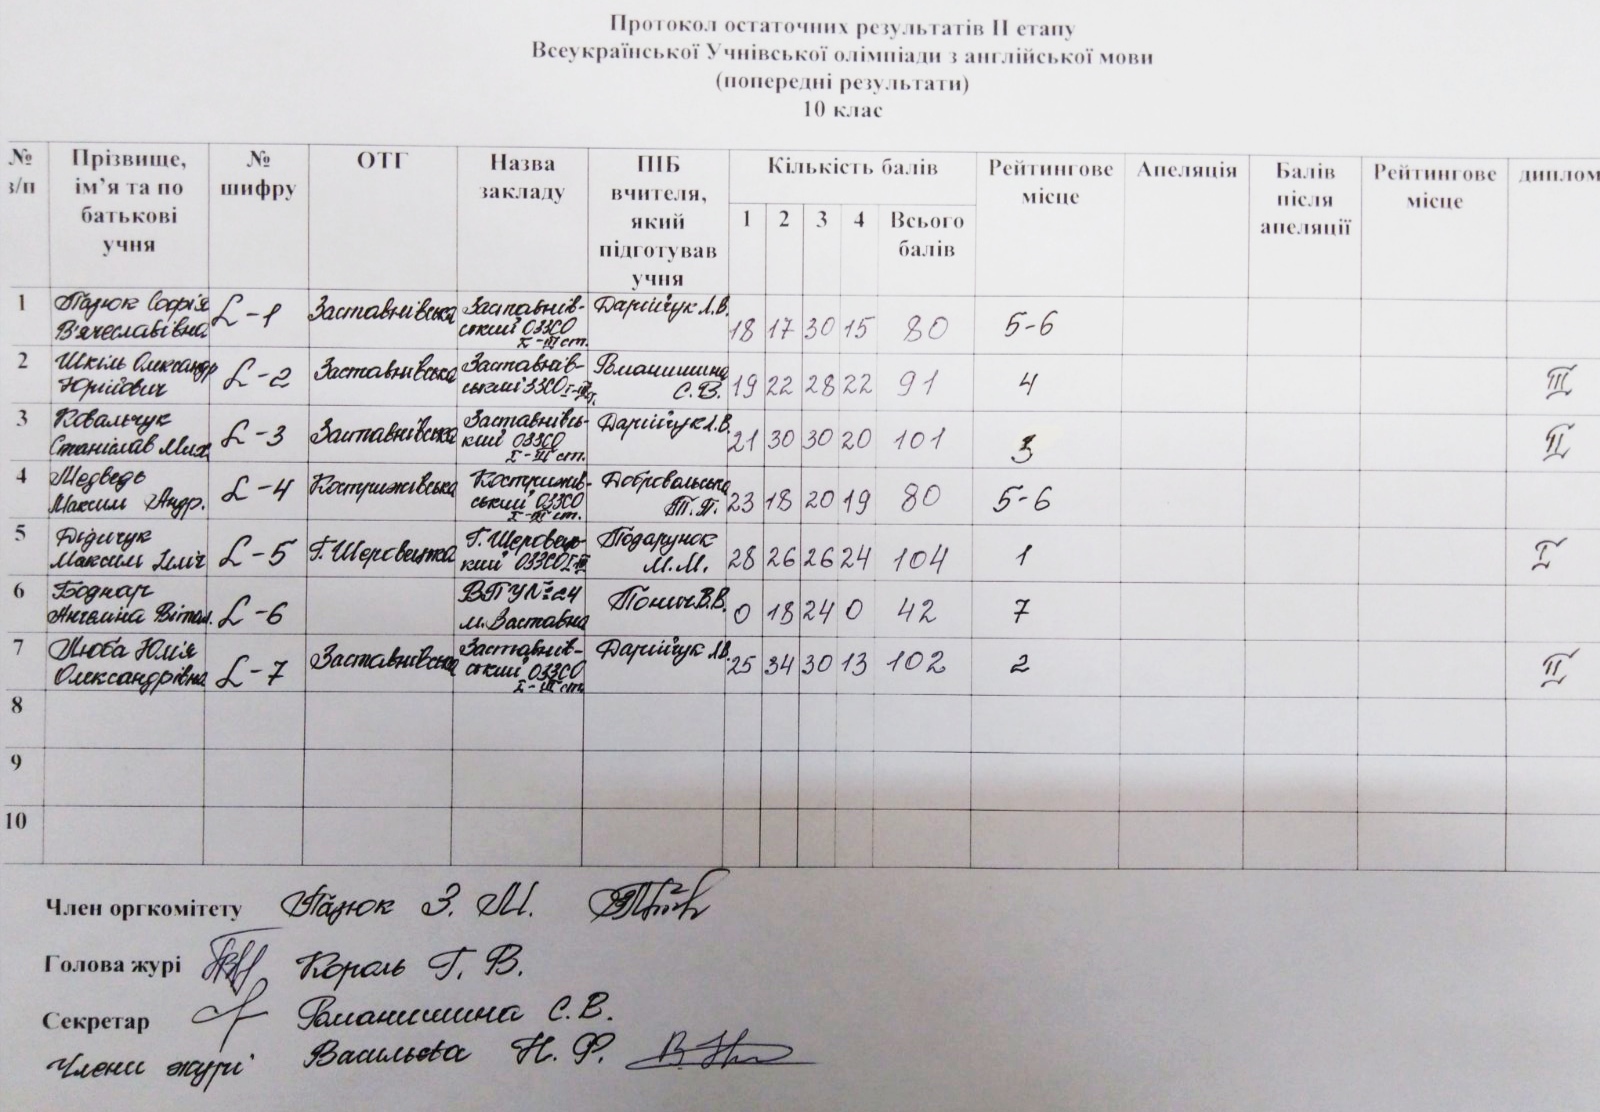 Протокол остаточних результатів ІІ етапу
Всеукраїнської Учнівської олімпіади з англійської мови
(попередні результати)
10 клас
№ з/п Прізвище, ім’я та по батькові учня № шифру ОТГ Назва закладу ПІБ вчителя, який підготував учня Кількість балів 1 2 3 4 Всього балів Рейтингове місце Апеляція Балів після апеляції Рейтингове місце диплом
1 Пазюк Софія В'ячеславівна L-1 Заставнівська Заставнівський ОЗЗСО І-ІІІ ст. Дарійчук Л.В. 18 17 30 15 80 5-6
2 Шкіль Олександр Юрійович L-2 Заставнівська Заставнівський ЗЗСО Романишина С.В. 19 22 28 22 91 4 ІІІ
3 Ковальчук Станіслав Мих L-3 Заставнівська Заставнівський ОЗЗСО І-ІІІ ст. Дарійчук Л.В. 21 30 30 20 101 3 ІІ
4 Медведь Максим Андр. L-4 Кострижівська Кострижівський ОЗЗСО І-ІІІ ст. Добровольська Т.П. 23 18 20 19 80 5-6
5 Дідичук Максим L-5 Г. Шеровецька Г. Шеровецький ОЗЗСО І-ІІІ Подарунок М.М. 28 26 26 24 104 1 І
6 Боднар Ангеліна Вітал. L-6 ВПУ №24 м. Заставна В.В. 0 18 24 0 42 7
7 Люба Юлія Олександрівна L-7 Заставнівська Заставнівський ОЗЗСО І-ІІІ ст. Дарійчук Л.В. 25 34 30 13 102 2 ІІ
8
9
10
Член оргкомітету Пазюк З. М.
Голова журі Король Г. В.
Секретар Романишина С. В.
Члени журі Васильєва Н. Ф.